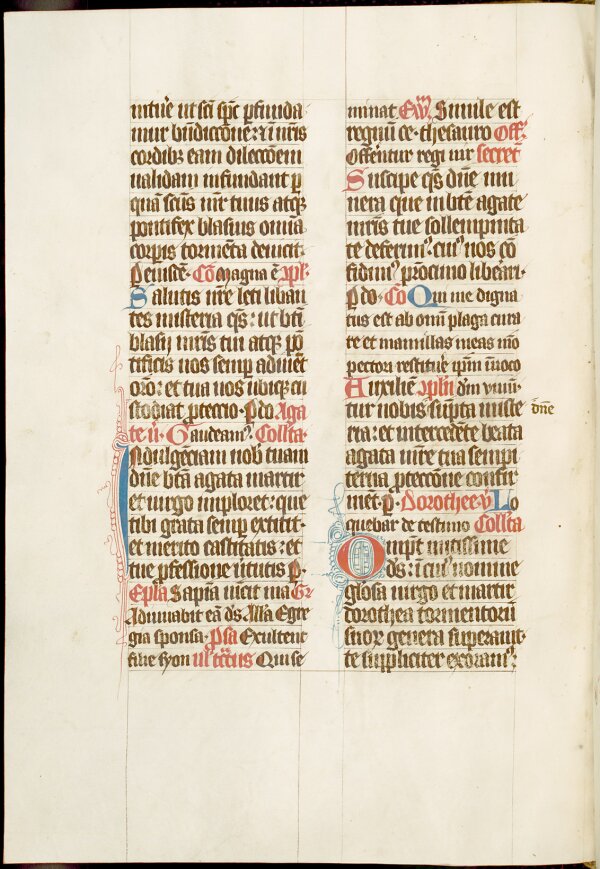 mur bn̄diccōne᷒: ⁊ i nr̄is
cordib᷒ eam dileccōem
ualidam infundant p̱
qua scūs mr̄ tuus atq᷒
pontifex blasius om̄ia
corp̱is tormēta deuicit.
P̱ eiusdē. Cō Magna ē Ꝯpl̄.
Salutis nr̄e leti liban
tes misteria q̄s: ut bt̄i
blasij mr̄is tui atq᷒ pō
tificis nos semp̱ adiuuēt
orō: et tua nos ubiq᷒ cu
stodiat p̱teccio. P̱ do. Aga
te ū. Gaudeam᷒. Collc̄ta.
Indulgēciam nob̄ tuam
dn̄e bt̄a agata martir
et uirgo imploret: que
tibi grata semp̱ extitit.
et merito castitatis: et
tue p̱fessione uirtutis. P̱.
Ep̄la Sapiā uicit mā Gr̄
Adiuuabit eā d̄s. All̄a Egre
gia sponsa. P̄sā Exultent
filie syon ul̄ tc̄tus Qui se
minat Ew̄. Simile est
regnū ce. thesauro Off̄.
Offerētur regi uir̄ secret̄
Suscipe q̄s dn̄e mu
nera que in bt̄e agate
mr̄is tue sollempnita
te deferim᷒. cui᷒ nos cō
fidim᷒ p̱rocinio lib̄eari.
P̱ do. Cō Qui me digna
tus est ab om̄i plaga cura
re et mamillas meas meo
pectori restitue᷒ ip̄m īuoco
Auxiliē Ꝯpl̄n dm̄ viuū.
tur nobis sūpta miste dn̄e
ria: et intercedēte beata
agata mr̄e tua sempi
terna p̱teccōne confir
mēt. P̱. Dorothee v̄ Lo
quebar de testimo Collc̄ta
Omp̄t mitissime
d̄s: i cui᷒ nomine
gl̄iosa uirgo et martir
dorothea tormentorū
suor̄ genera superauit.
te suppliciter exoram᷒: